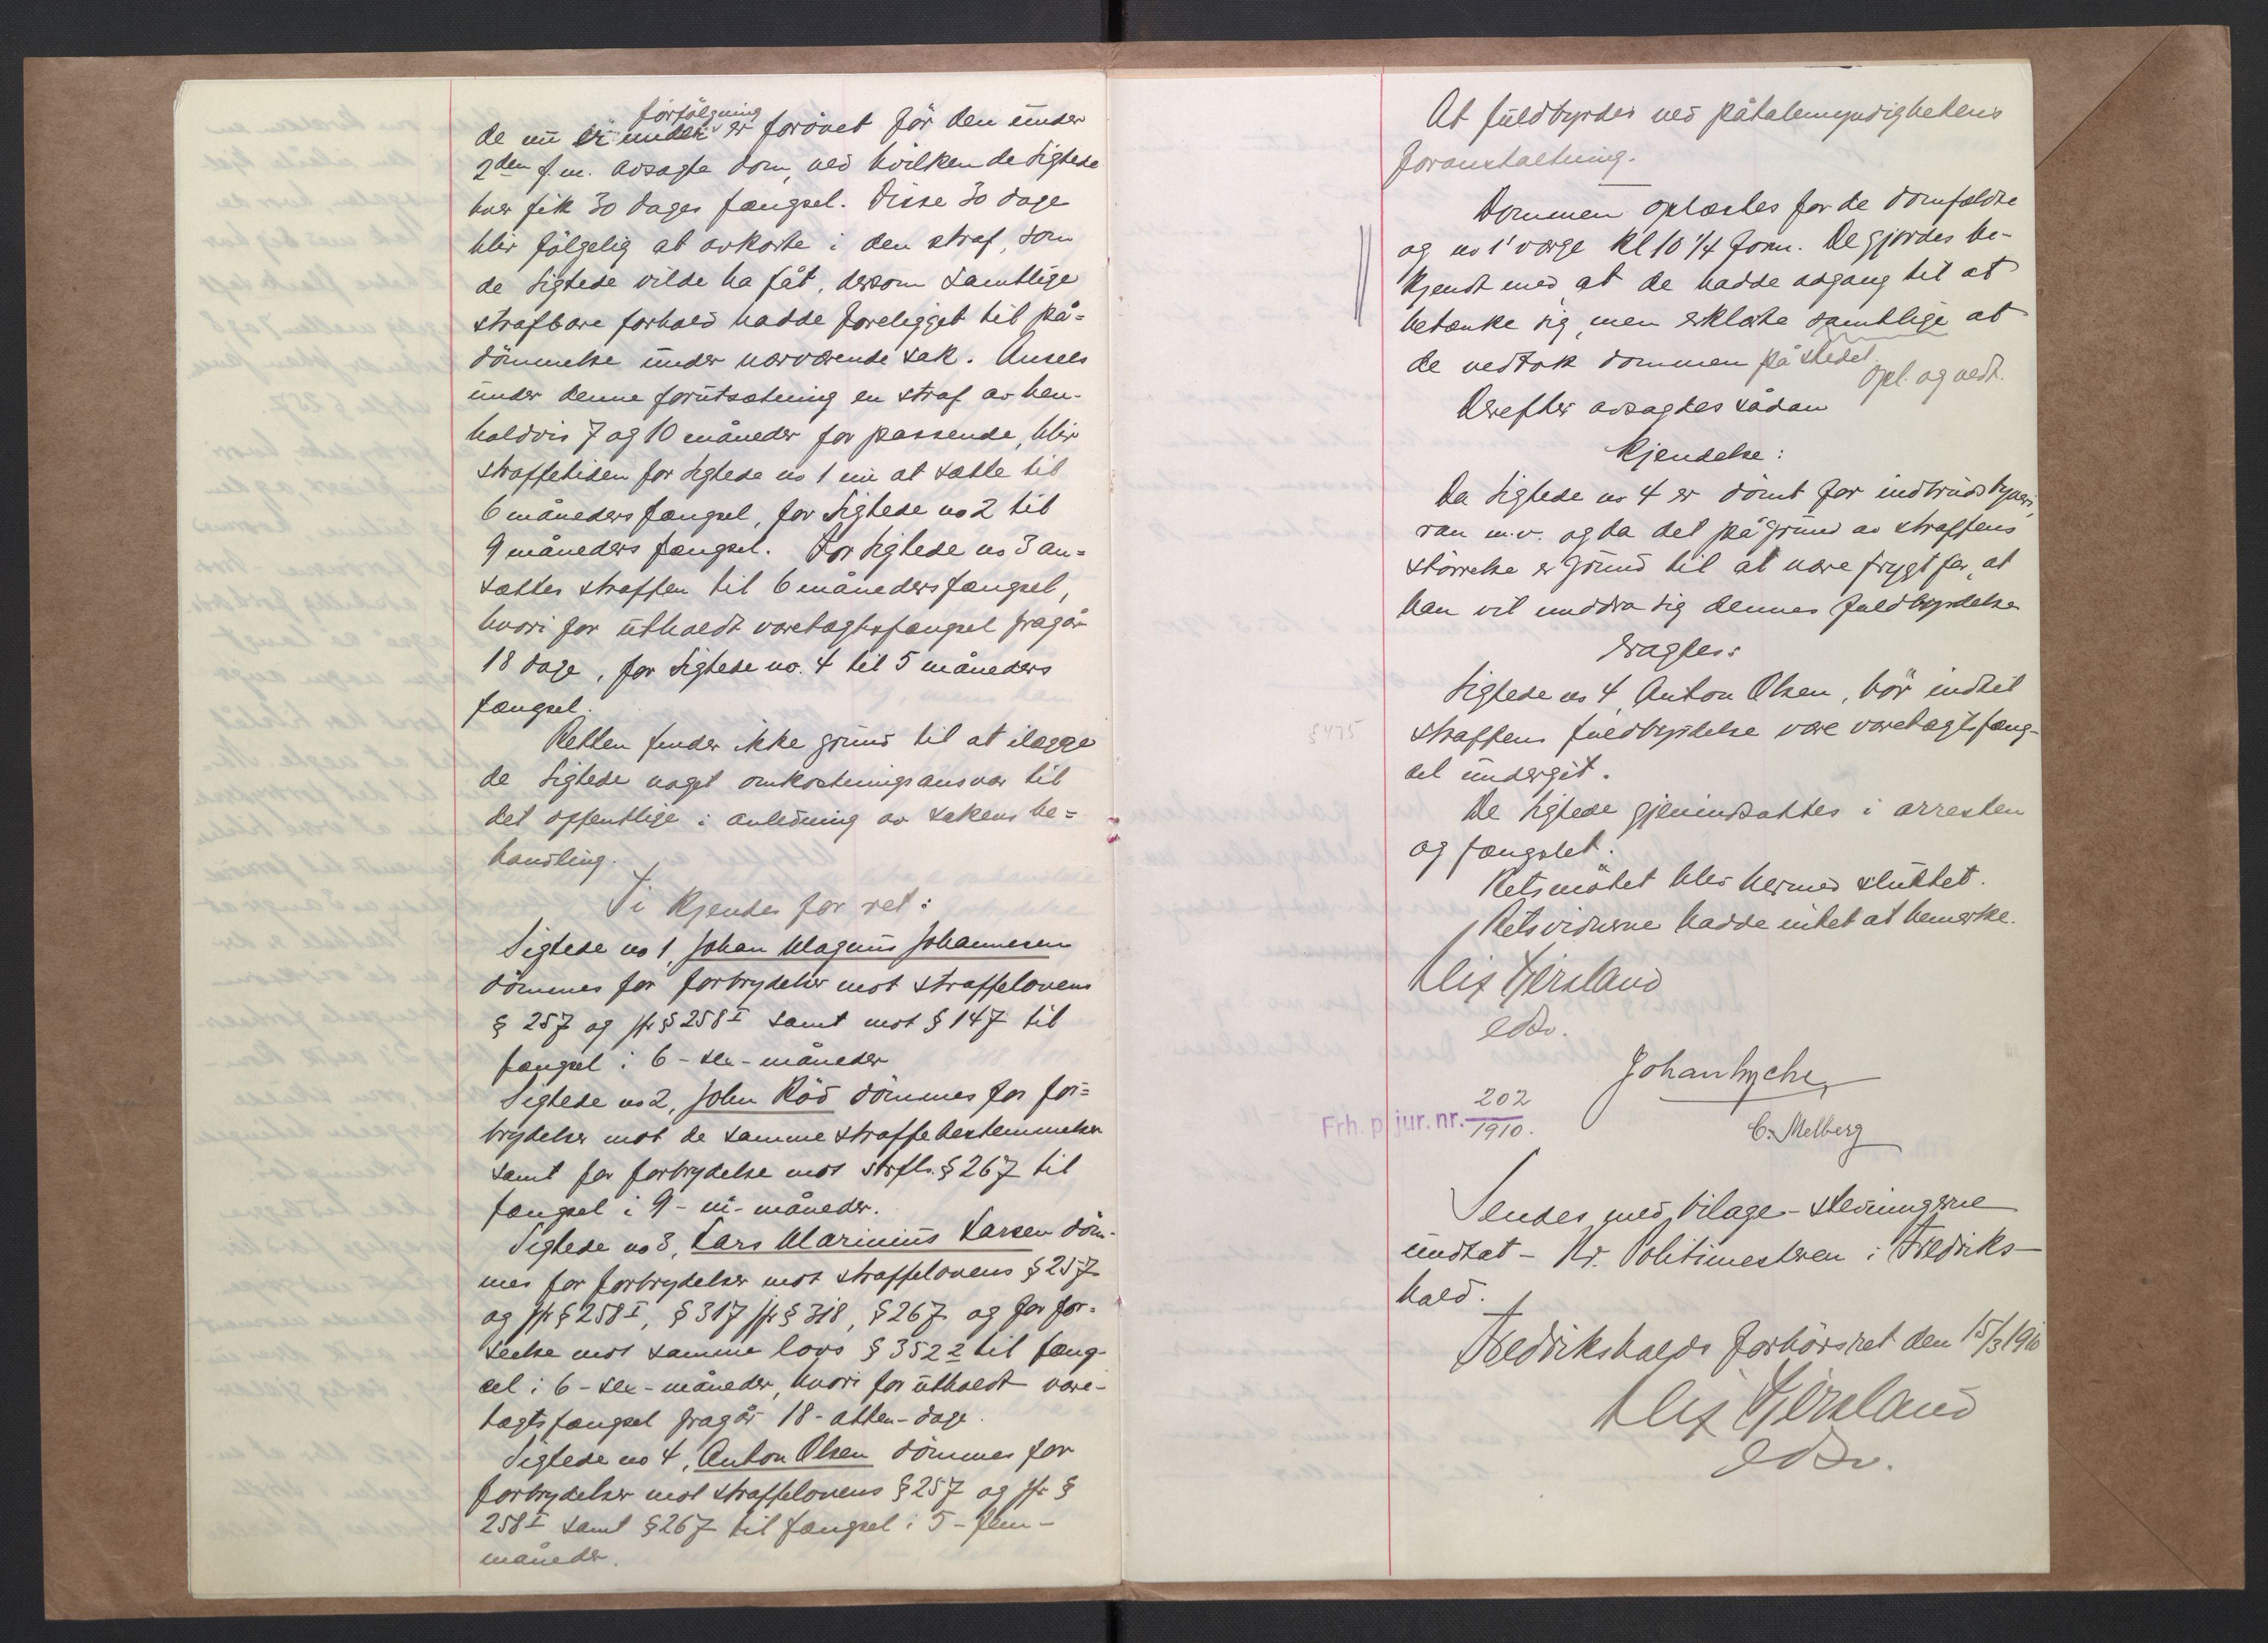 forfölgning
de nu er under er forövet før den under
2den f.m. avsagte dom, ved hvilken de sigtede
hver fik 30 dages fængsel. Disse 30 dage
blir fölgelig at avkorte i den straf, som
de sigtede vilde ha fåt, dersom samtlige
strafbare forhold hadde foreligget til på-
dömmelse under nærværende sak. Ansees
under denne forutsætning en straf av hen-
holdsvis 7 og 10 måneder for passende, blir
straffetiden for sigtede no 1 nu at sætte til
6 måneders fængsel, for sigtede no 2 til
9 måneders fængsel. For sigtede no 3 an-
sættes straffen til 6 måneders fængsel,
hvori for utholdt varetægtsfængsel fragår
18 dage, for sigtede no. 4 til 5 måneders
fængsel.
Retten finder ikke grund til at ilægge
de sigtede noget omkostningsansvar til
det offentlige i anledning av sakens be-
handling.
Ti kjendes for ret:
Sigtede no 1, Johan Magnus Johannesen
dömmes for forbrydelser mot straffelovens
§ 257 og jfr § 258 I samt mot § 147 til
fængsel i 6 - sex - måneder
Sigtede no 2, John Röd dömmes for for-
brydelser mot de samme straffebestemmelser
samt for forbrydelse mot strfl. § 267 til
fængsel i 9 - ni - måneder.
Sigtede no 3, Lars Marinius Larsen döm-
mes for forbrydelser mot straffelovens § 257
og jfr § 258 I, § 317 jfr § 318, § 267 og for for-
seelse mot samme lovs § 352 2 til fæng-
sel i 6 - sex - måneder, hvori for utholdt vare-
tægtsfængsel fragår 18 - atten - dage.
Sigtede no 4, Anton Olsen dömmes for
forbrydelser mot straffelovens § 257 og jfr §
258 I samt § 267 til fængsel i 5 - fem -
måneder.
At fuldbyrdes ved påtalemyndighetens
foranstaltning.
Dommen oplæstes for de domfældte
og no 1' værge kl 10 1/4 form. De gjordes be-
kjendt med at de hadde adgang til at
betænke sig, men erklærte samtlige at
de vedtok dommen på stedet.
Opl. og vedt.
Derefter avsagdes sådan
Kjendelse:
Da sigtede no 4 er dömt for indbrudstyveri,
ran m.v. og da det på grund av straffens
störrelse er grund til at nære frygt for, at
han vil unddra sig dennes fuldbyrdelse
eragtes:
Sigtede no 4, Anton Olsen, bör indtil
§ 475
straffens fuldbyrdelse være varetægtsfæng-
sel undergit.
De sigtede gjenindsattes i arresten
og fængslet.
Retsmötet blev hermed sluttet.
Retsvidnerne hadde intet at bemerke.
Alex Gjersland
edsv.
Johan Lyche
C. Melberg
Frh. p. jur. nr. 202
1910.
Sendes med bilage - stevningerne
undtat - Hr. Politimesteren i Fredriks-
hald.
Fredrikshalds forhörsret den 15/3 1910
Alex Gjersland
edsv.